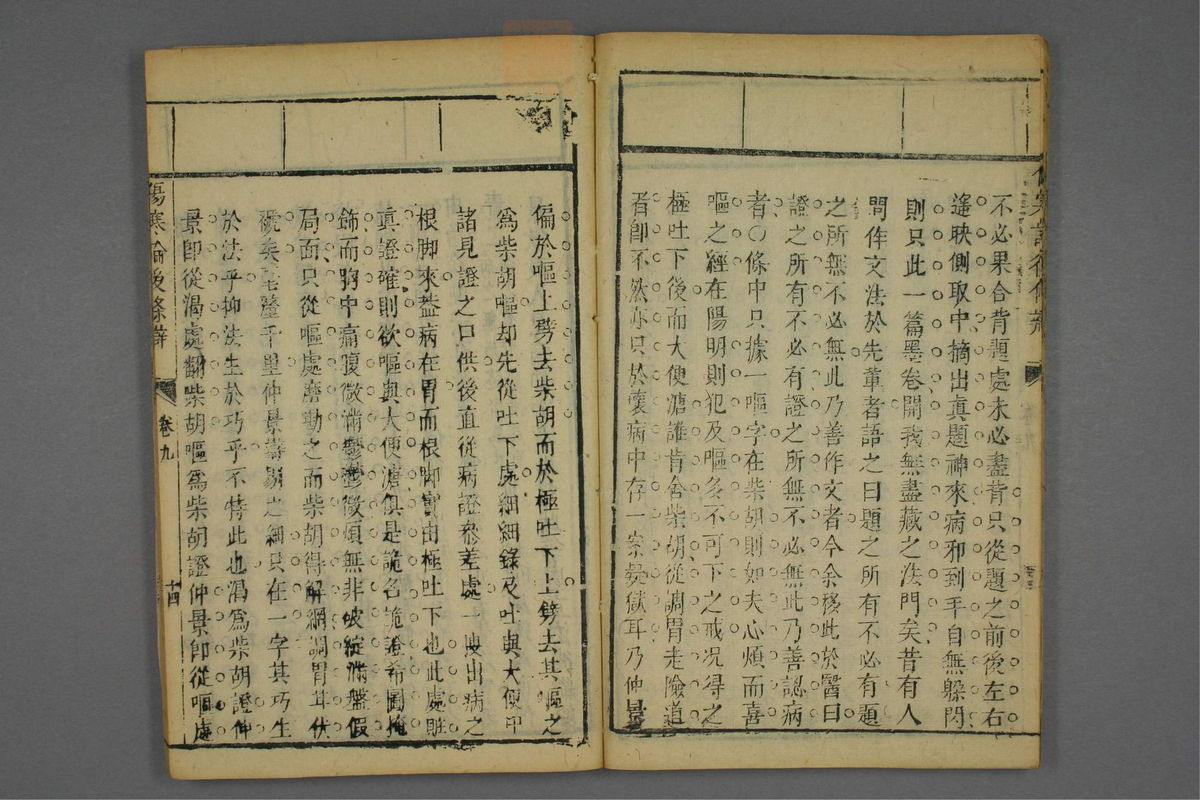 不必果合背題處未必盡背只從題之前後左右
遙映側取中摘出真題神來病邪到手自無躲閃
則只此一篇墨卷開我無盡藏之法門矣昔有人
問作文法於先輩者語之曰題之所有不必有題
之所無不必無此乃善作文者今余移此於醫曰
證之所有不必有證之所無不必無此乃善認病
者〇條中只據一嘔字在柴胡則如夫心煩而喜
嘔之經在陽明則犯及嘔多不可下之戒况得之
極吐下後而大便溏誰肯舍柴胡從調胃走險道
者卽不然亦只於壞病中存一案疑獄耳乃仲景
偏於嘔上劈去柴胡而於極吐下上劈去其嘔之
爲柴胡嘔却先從吐下處細細錄及吐與大便卽
諸見證之口供後直從病證參差處一搜出病之
根脚來葢病在胃而根脚實由極吐下也此處賍
真證確則欲嘔與大便溏俱是詭名詭證希圖掩
飾而胸中痛腹微滿鬱鬱微煩無非破綻滿盤假
局面只從嘔處磨勘之而柴胡得解網調胃耳伏
毫釐千里仲景辯之細只在一字其巧生
於法乎抑法生於巧乎不特此也渴爲柴胡證仲
景卽從渴處翻柴胡嘔爲柴胡證仲景卽從嘔處
傷寒論後條辯
卷九
十四